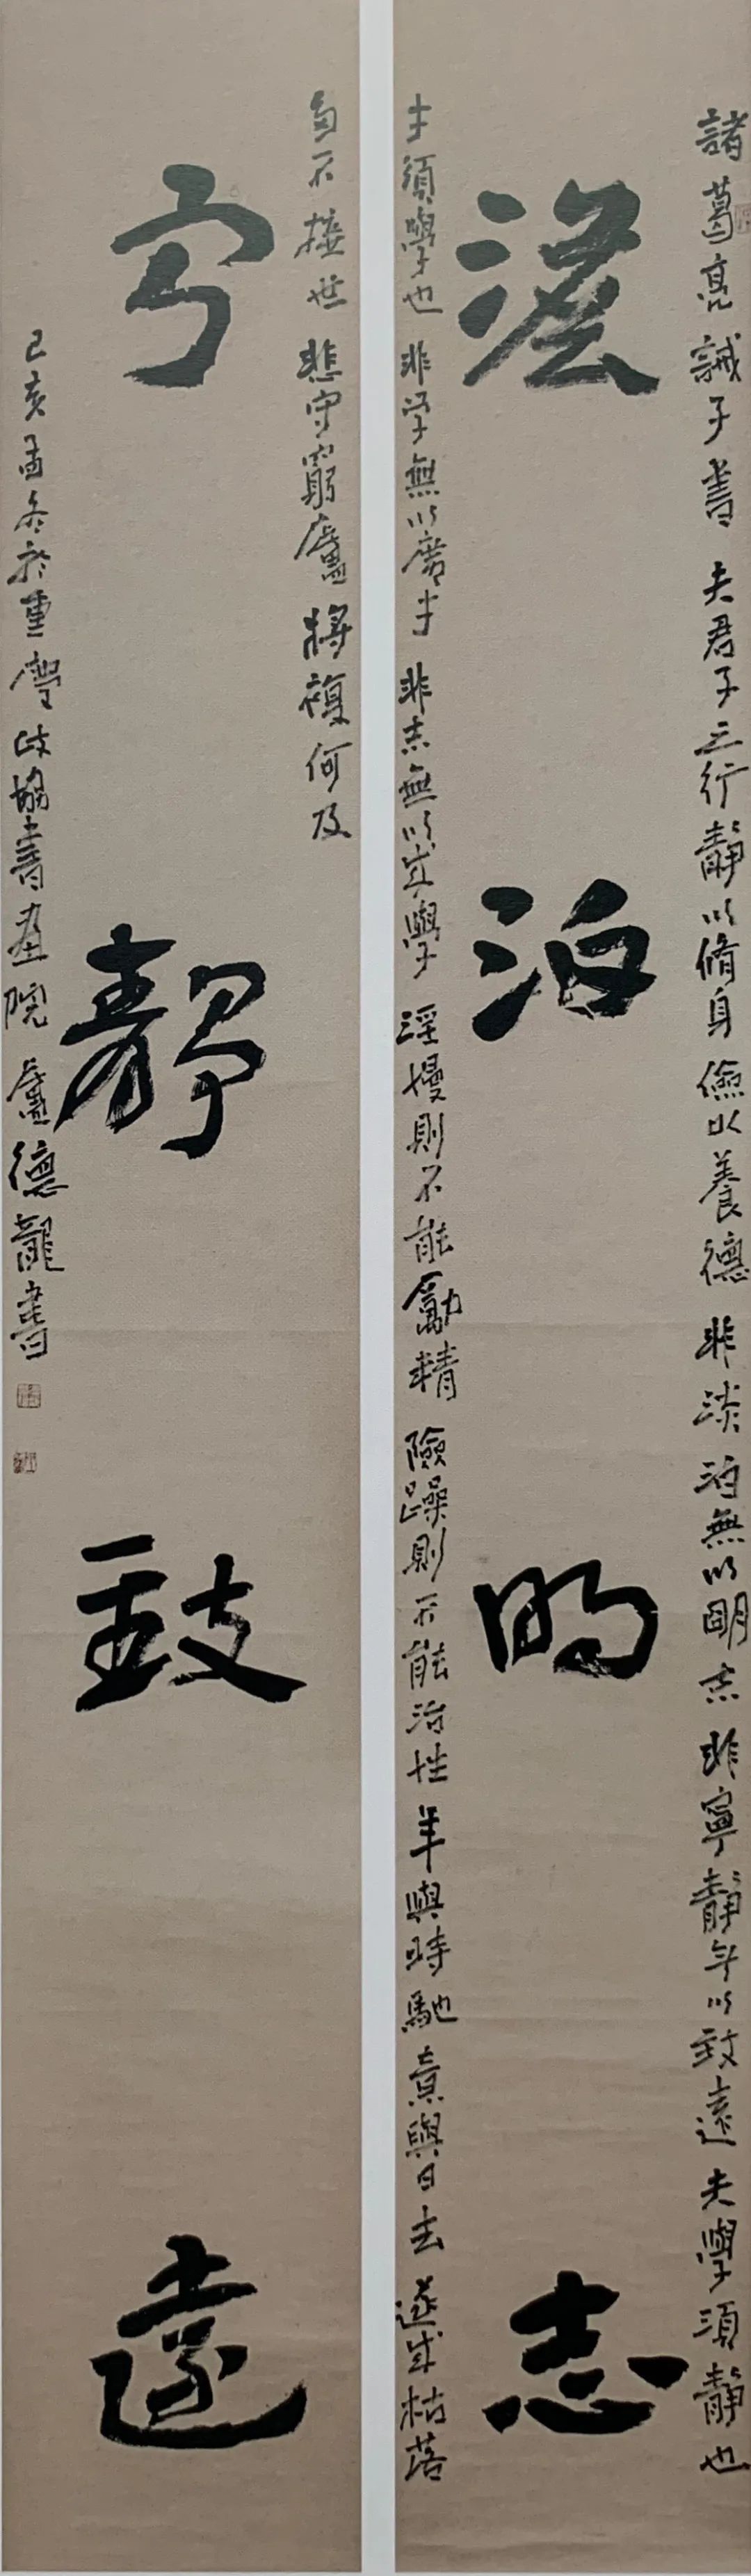 諸葛亮誡子書 夫君子之行靜以脩身儉以養德非淡泊無以朙志非寧靜無以致遠夫學須靜也
澹泊明志
才須學也非学無以廣才非志無以成學淫慢則不能勵精險躁則不能治性年與時馳意與日去遂成枯落
多不接世悲守窮廬將復何及
寧靜致遠
己亥孟冬於重慶政協書畫院盧德龍書